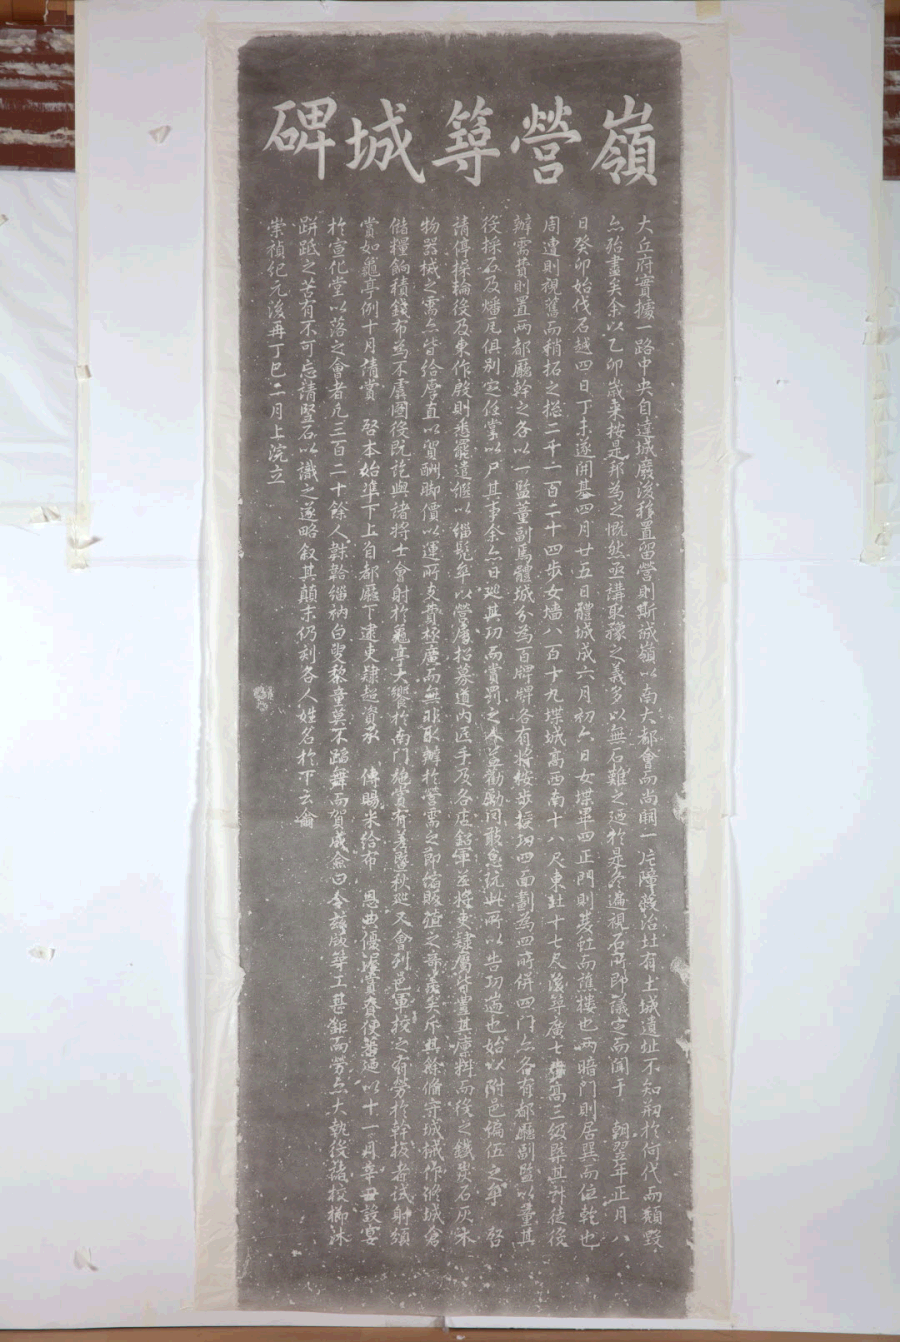 嶺營築城碑
大丘府實據一路中央自達城廢後移置留營則斯誠嶺以南大都會而尚闕一片障蔽治北有土城遺址不知刱於何代而頹毁
亦殆盡矣余以乙卯歲來按是邦爲之慨然亟講取豫之義多以無石難之迺於是冬遍視石所卽議定而聞于 朝翌年正月八
日癸卯始伐石越四日丁未遂開基四月廿五日體城成六月初六日女堞畢四正門則發虹而譙樓也兩暗門則居巽而位乾也
周遭則視舊而稍拓之摠二千一百二十四步女墻八百十九堞城高西南十八尺東北十七尺後築廣七步高三級槩其募徒後
辦需費則置兩都廳幹之各以一監董副焉體城分爲百牌牌各有將按步授功四面劃爲四所併四門亦各有都廳副監以董其
後採石及燔瓦俱別定任掌以尸其事余亦日巡其功而賞罰之人莫勸勵罔敢怠玩此所以告功遄也始以附邑編伍之軍 啓
請停操輪後及東作殷則悉罷遣繼以緇髡牟以營廩招募道內匠手乃各店鉛軍並將吏隸屬皆置其廩料而後之鐵炭石灰沐
物器械之需亦皆給厚直以貿酬脚價以運所支費極廣而無非取辦於營需之節縮販殖之
儲糧餉積錢布爲不虞圖後旣訖與諸將士會射於龜亭大饗於南門施賞有差曁秋巡又會列邑軍校之有勞於幹者試射頒
賞如龜亭例十月請賞 啓本始準下上自都廳下逮吏隸超資承 傳賜米給布 恩典優渥賞賚便蕃迺以十一月辛丑設宴
於宣化堂以落之會者凡三百二十餘人韎韐緇衲白叟黎童莫不蹈舞而賀咸僉曰今玆版築工甚鉅而勞亦大執後諸校櫛沐
跰胝之苦有不可忘請竪石以識之遂略叙其顚末仍刻各人姓名於下云爾
崇禎紀元後再丁巳二月上浣立